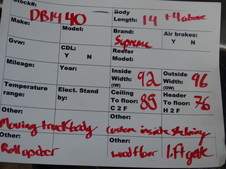 Stock#: DB1440
Body Length: 14 +4 above
Make: Model:
Brand: Supreme
Air brakes: Y N
Gvw: CDL: Y N
Reefer Model:
Mileage: Year:
Inside Width: (IW) 92
Outside Width: (OW) 96
Temperature range:
Elect. Stand by:
Ceiling To floor: H 2 F 89
Header To floor: H 2 F 76
Other: Moving truck body
Other: custom inside shelving
Other: Roll up door
Other: wood floor
Other: Liftgate